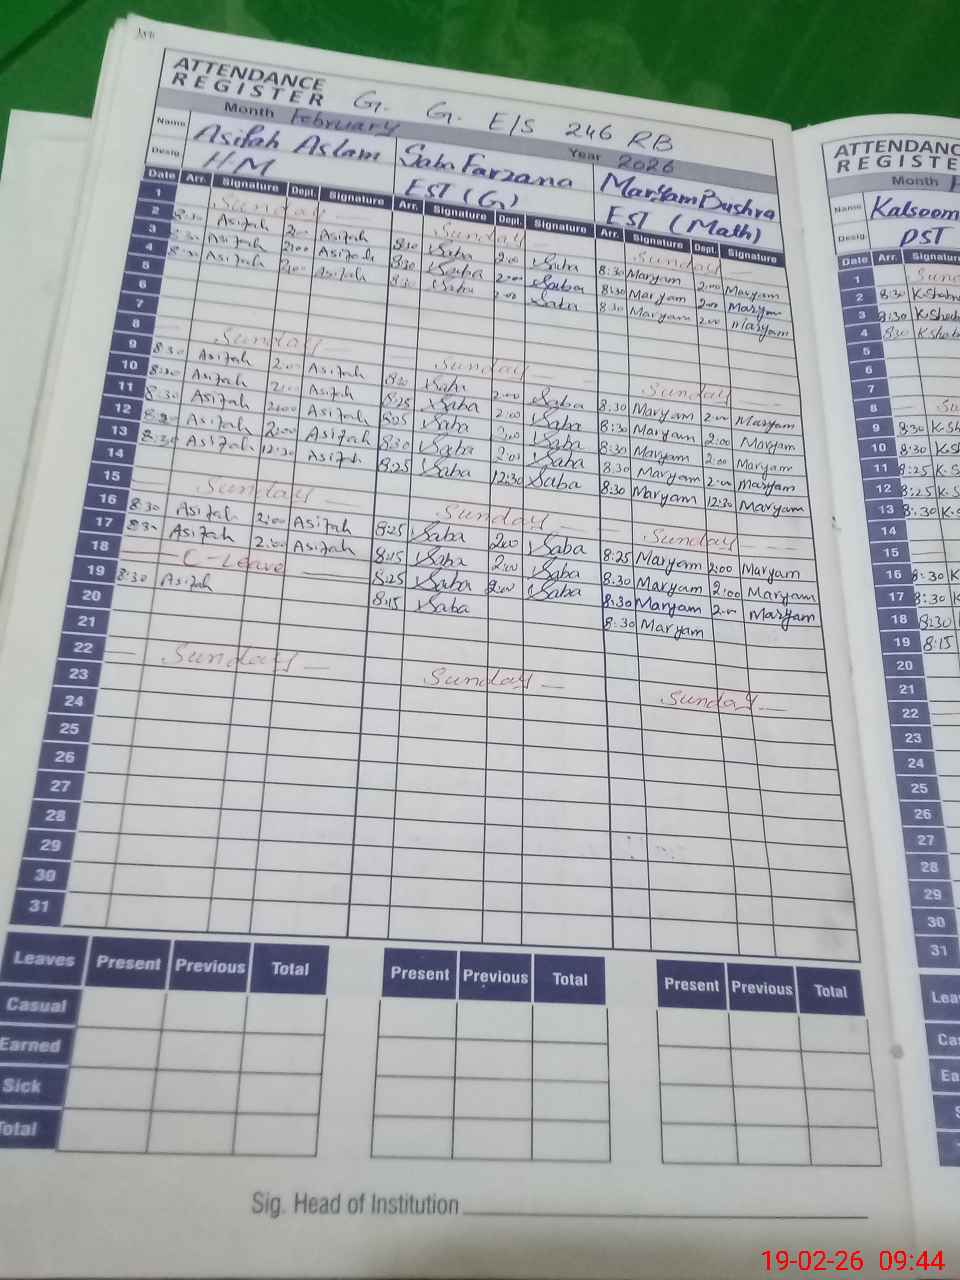 ATTENDANCE REGISTER G. G. E/S 246 RB
Month February Year 2026
Name Asifah Aslam Saba Farzana Maryam Bushra
Desig. H/M EST (G) EST (Math)
Date Arr. Signature Dept. Signature Arr. Signature Dept. Signature Arr. Signature Dept. Signature
1 Sunday Sunday Sunday
2 8:30 Asifah 2:00 Asifah 8:30 Saba 2:00 Saba 8:30 Maryam 2:00 Maryam
3 8:30 Asifah 2:00 Asifah 8:30 Saba 2:00 Saba 8:30 Maryam 2:00 Maryam
4 8:30 Asifah 2:00 Asifah 8:30 Saba 2:00 Saba 8:30 Maryam 2:00 Maryam
5
6
7
8 Sunday Sunday Sunday
9 8:30 Asifah 2:00 Asifah 8:30 Saba 2:00 Saba 8:30 Maryam 2:00 Maryam
10 8:30 Asifah 2:00 Asifah 8:25 Saba 2:00 Saba 8:30 Maryam 2:00 Maryam
11 8:30 Asifah 2:00 Asifah 8:25 Saba 2:00 Saba 8:30 Maryam 2:00 Maryam
12 8:30 Asifah 2:00 Asifah 8:30 Saba 2:00 Saba 8:30 Maryam 2:00 Maryam
13 8:30 Asifah 12:30 Asifah 8:25 Saba 12:30 Saba 8:30 Maryam 12:30 Maryam
14
15 Sunday Sunday Sunday
16 8:30 Asifah 2:00 Asifah 8:25 Saba 2:00 Saba 8:25 Maryam 2:00 Maryam
17 8:30 Asifah 2:00 Asifah 8:25 Saba 2:00 Saba 8:30 Maryam 2:00 Maryam
18 C-Leave 8:25 Saba 2:00 Saba 8:30 Maryam 2:00 Maryam
19 8:30 Asifah 8:15 Saba 8:30 Maryam
20
21
22 Sunday Sunday Sunday
23
24
25
26
27
28
29
30
31
Leaves Present Previous Total Present Previous Total Present Previous Total
Casual
Earned
Sick
Total
Sig. Head of Institution
ATTENDANC
REGISTE
Month
Name Kalsoom
Desig. PST
Date Arr. Signatur
1
2 8:30
3 8:30
4 8:30
5
6
7
8
9 8:30
10 8:30
11 8:25
12 8:25
13 8:30
14
15
16 8:30
17 8:30
18 8:30
19 8:15
20
21
22
23
24
25
26
27
28
29
30
31
Lea
Ca
Ea
19-02-26 09:44